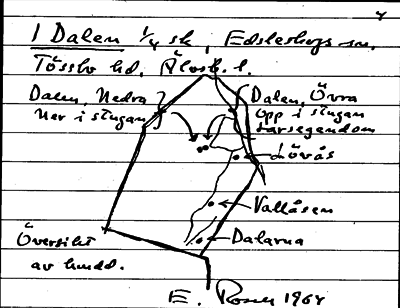 1 Dalen 1/4 sk, Edsleskogs sn.
Tössbo hd. Älvsb. l.
Dalen, Nedra
Ner i stugan
Dalen, Övra
Opp i stugan
Larsegendom
Lövås
Vallåsen
Dalarna
Översikt
av hmdd.
E. 1964